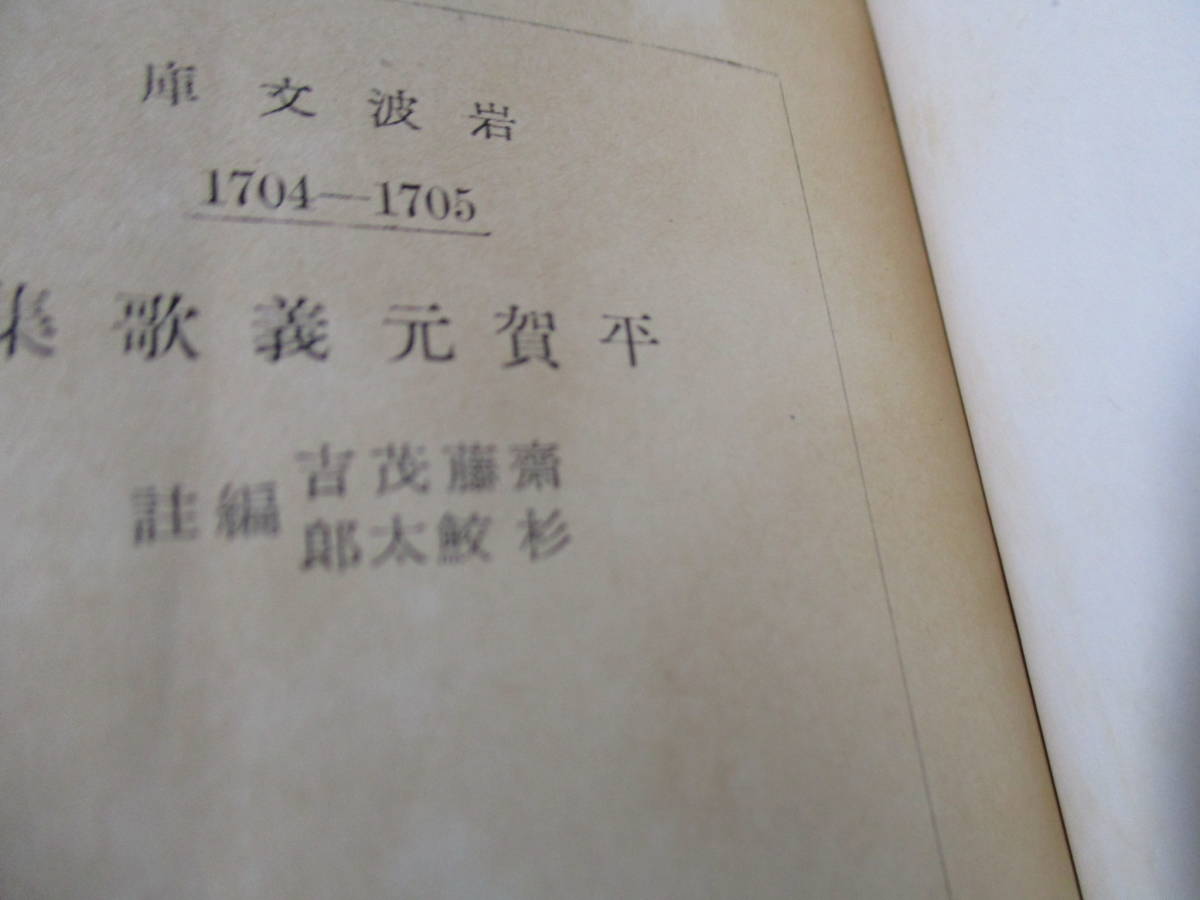 岩波文庫
1704—1705
平賀元義歌集
齋藤茂吉
杉鮫太郎
編註